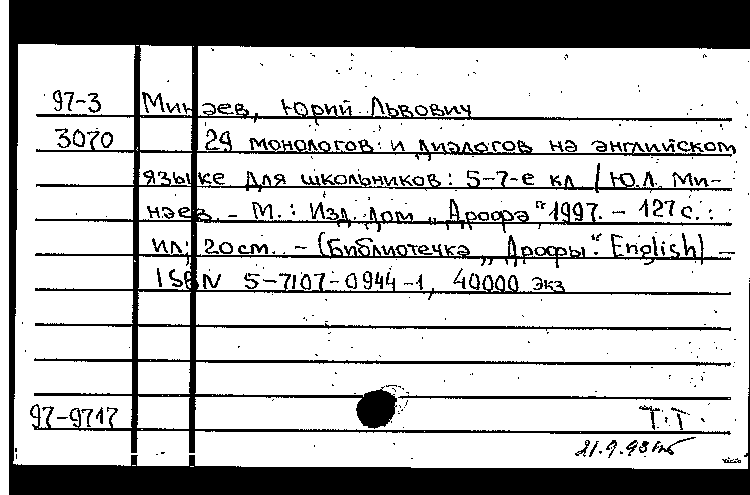 97-3 Минаев, Юрий Львович
3070 29 монологов и диалогов на английском
языке для школьников: 5-7-е кл / Ю.Л. Ми-
наев. - М.: Изд. дом „Дрофа“, 1997. - 127 с.:
ил; 20 cm. - (Библиотечка „Дрофы“. English) -
ISBN 5-7107-0944-1, 40000 экз
97-9717 Т.Т.
21.9.98